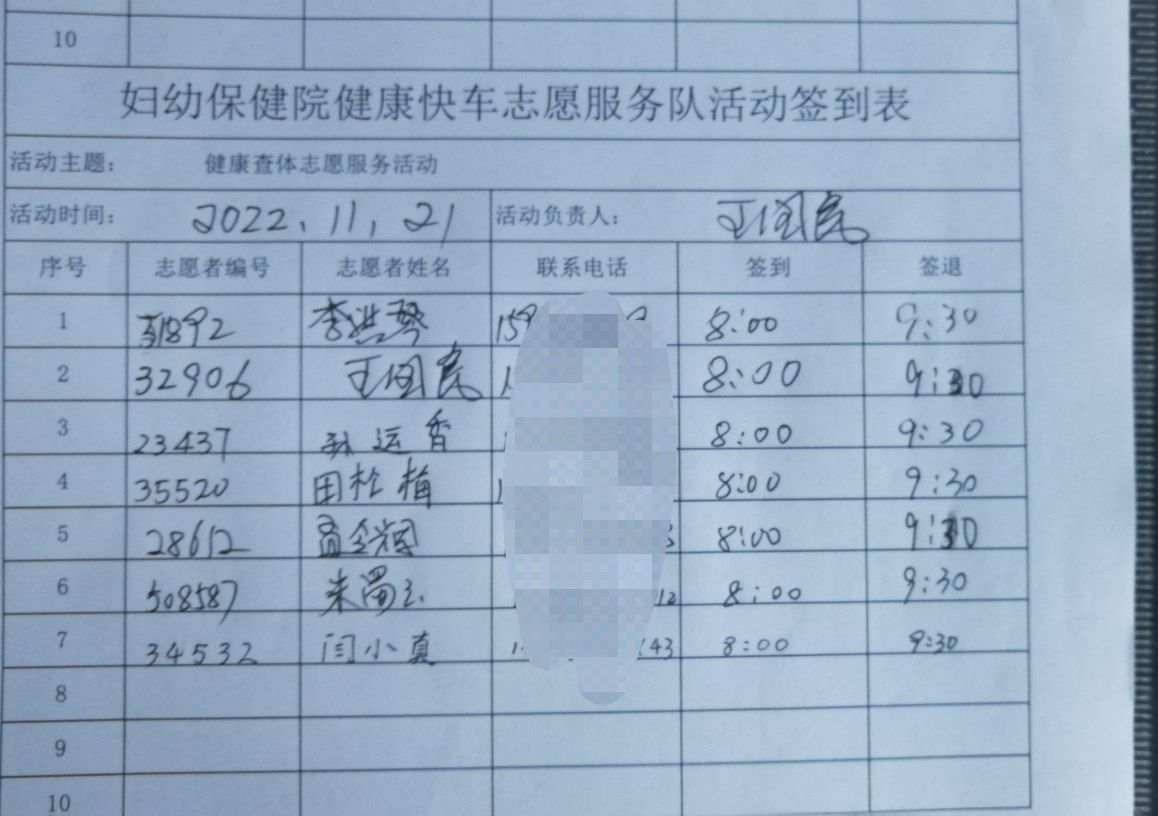 10
妇幼保健院健康快车志愿服务队活动签到表
活动主题： 健康查体志愿服务活动
活动时间： 2022.11.21 活动负责人： 王国良
序号 志愿者编号 志愿者姓名 联系电话 签到 签退
1 李洪琴 159 8:00 9:30
2 32906 8:00 9:30
3 23437 孙运香 8:00 9:30
4 35520 田桂梅 8:00 9:30
5 28612 8:00 9:30
6 508587 12 8:00 9:30
7 34532 闫小真 143 8:00 9:30
8
9
10